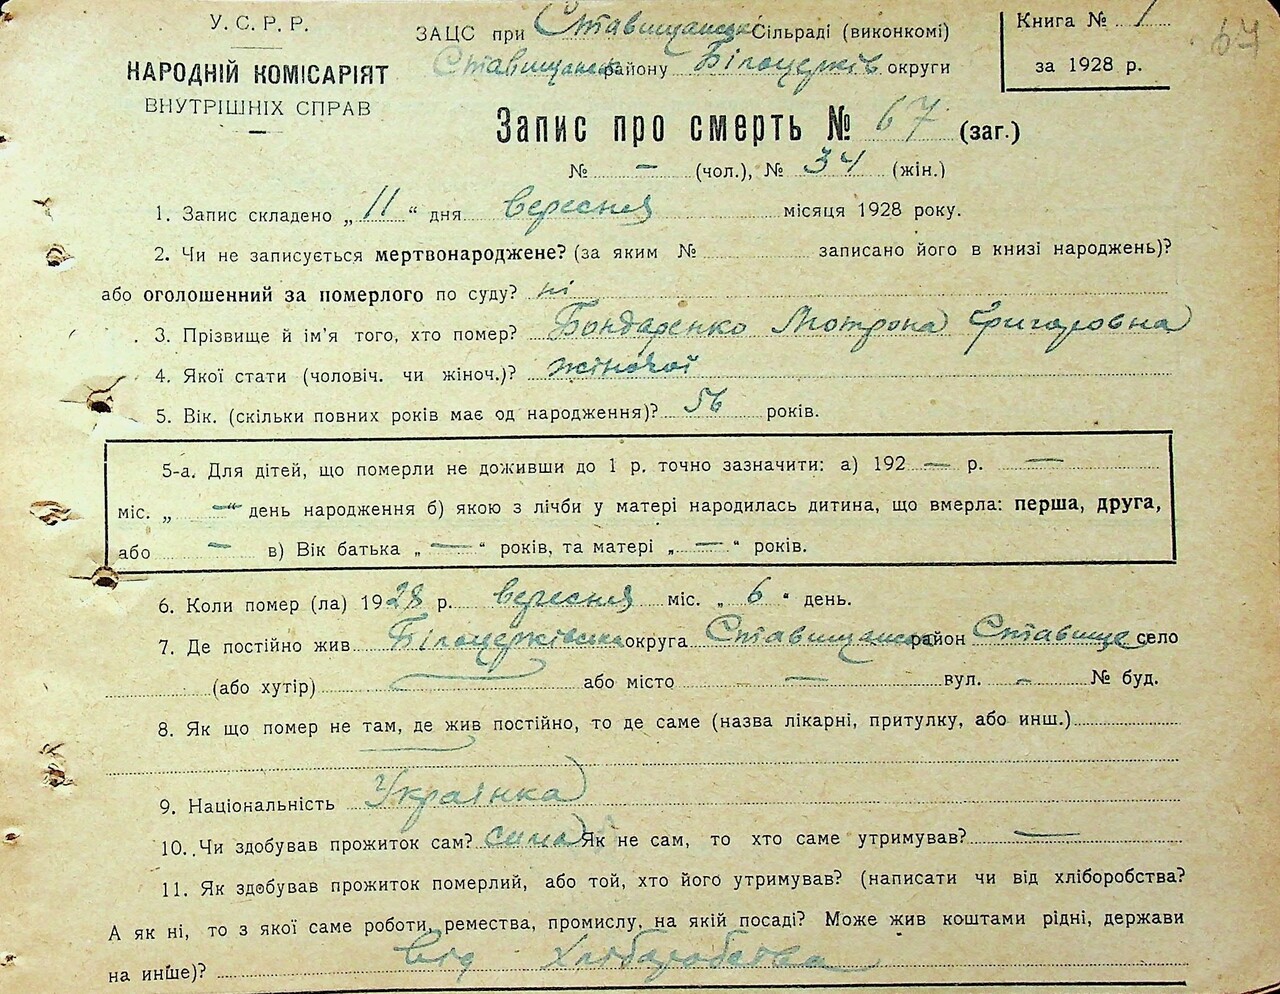 У. С. Р. Р.
НАРОДНІЙ КОМІСАРІЯТ
ВНУТРІШНІХ СПРАВ
ЗАЦС при Ставищанські Сільраді (виконкомі)
Ставищанськ району Білоцерків округи
Книга № 1
за 1928 р.
67
Запис про смерть № 67 (заг.)
№ — (чол.), № 34 (жін.)
1. Запис складено „11“ дня вересня місяця 1928 року.
2. Чи не записується мертвонароджене? (за яким № записано його в книзі народжень)?
або оголошенний за померлого по суду? ні
3. Прізвище й ім'я того, хто помер? Бондаренко Мотрона Григоровна
4. Якої стати (чоловіч. чи жіноч.)? жіночої
5. Вік. (скільки повних років має од народження)? 56 років.
5-а. Для дітей, що померли не доживши до 1 р. точно зазначити: а) 192 — р. —
міс. „ —“ день народження б) якою з лічби у матері народилась дитина, що вмерла: перша, друга,
або — в) Вік батька „ — “ років, та матері „ — “ років.
6. Коли помер (ла) 1928 р. вересня міс. „ 6 “ день.
7. Де постійно жив Білоцерківська округа Ставищанськ район Ставище село
(або хутір) або місто — вул. - № буд.
8. Як що помер не там, де жив постійно, то де саме (назва лікарні, притулку, або инш.)
9. Національність Українка
10. Чи здобував прожиток сам? сама Як не сам, то хто саме утримував? —
11. Як здобував прожиток померлий, або той, хто його утримував? (написати чи від хліборобства?
А як ні, то з якої саме роботи, ремества, промислу, на якій посаді? Може жив коштами рідні, держави
на инше)? від Хліборобства